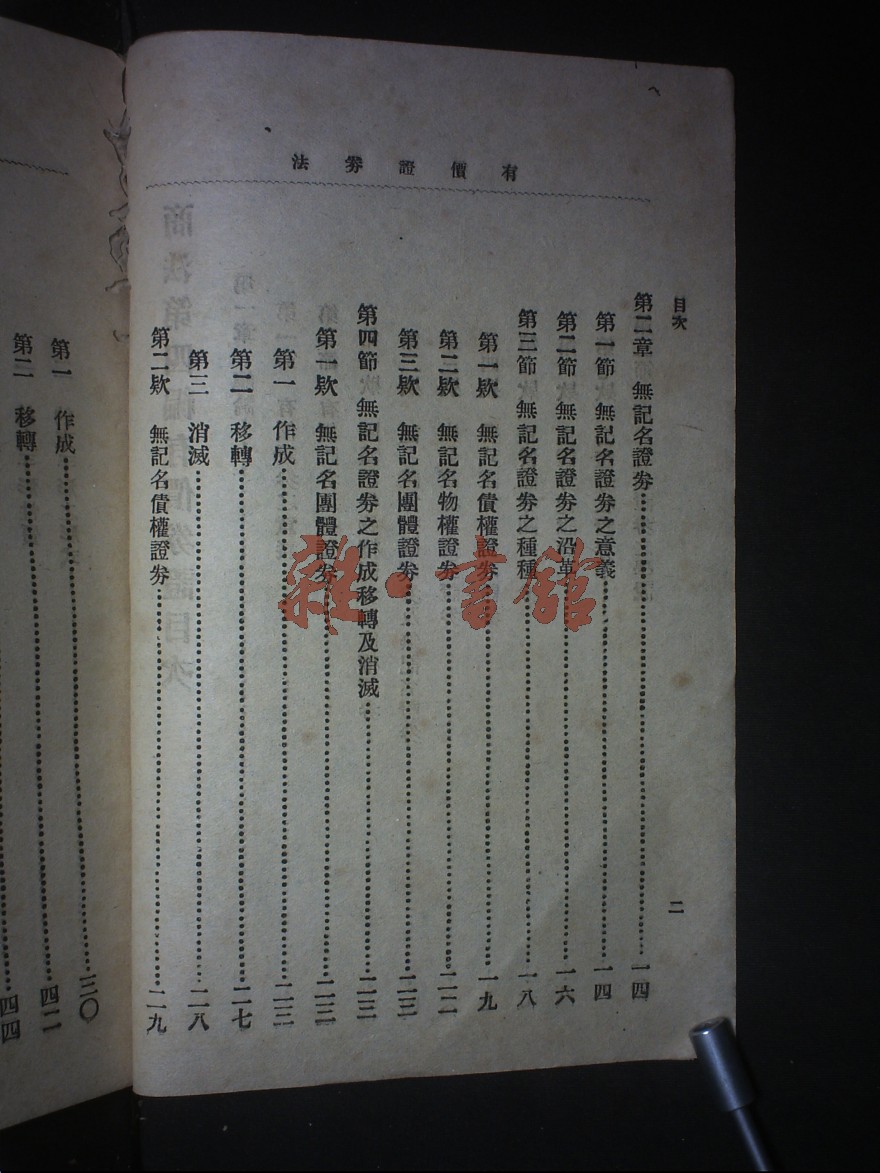 有價證券法
目次
二
第二章 無記名證券……一四
第一節 無記名證券之意義……一四
第二節 無記名證券之沿革……一六
第三節 無記名證券之種種……一八
第一欵 無記名債權證券……一九
第二欵 無記名物權證券……二二
第三欵 無記名團體證券……二三
第四節 無記名證券之作成移轉及消滅……二三
第一欵 無記名團體證券……二三
第一 作成……二三
第二 移轉……二七
第三 消滅……二八
第二欵 無記名債權證券……二九
第一 作成……三〇
第二 移轉……四二
四四
雜·書館